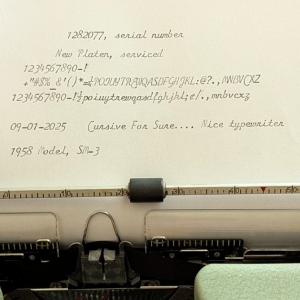 1282077, serial number
New Platen, serviced
1234567890-!
+"#$%_&'()*=¼POIUYTREWQASDFGHJKL:@?.,MNBVCXZ
1234567890-!½poiuytrewqasdfghjkl;¢/.,mnbvcxz
09-01-2025 Cursive For Sure.... Nice typewriter
1958 Model, SM-3